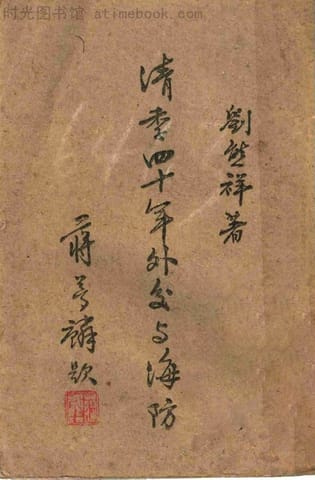 时光图书馆 www.atimebook.com
劉熊祥著
清季四十年外交与海防
蔣夢麟題